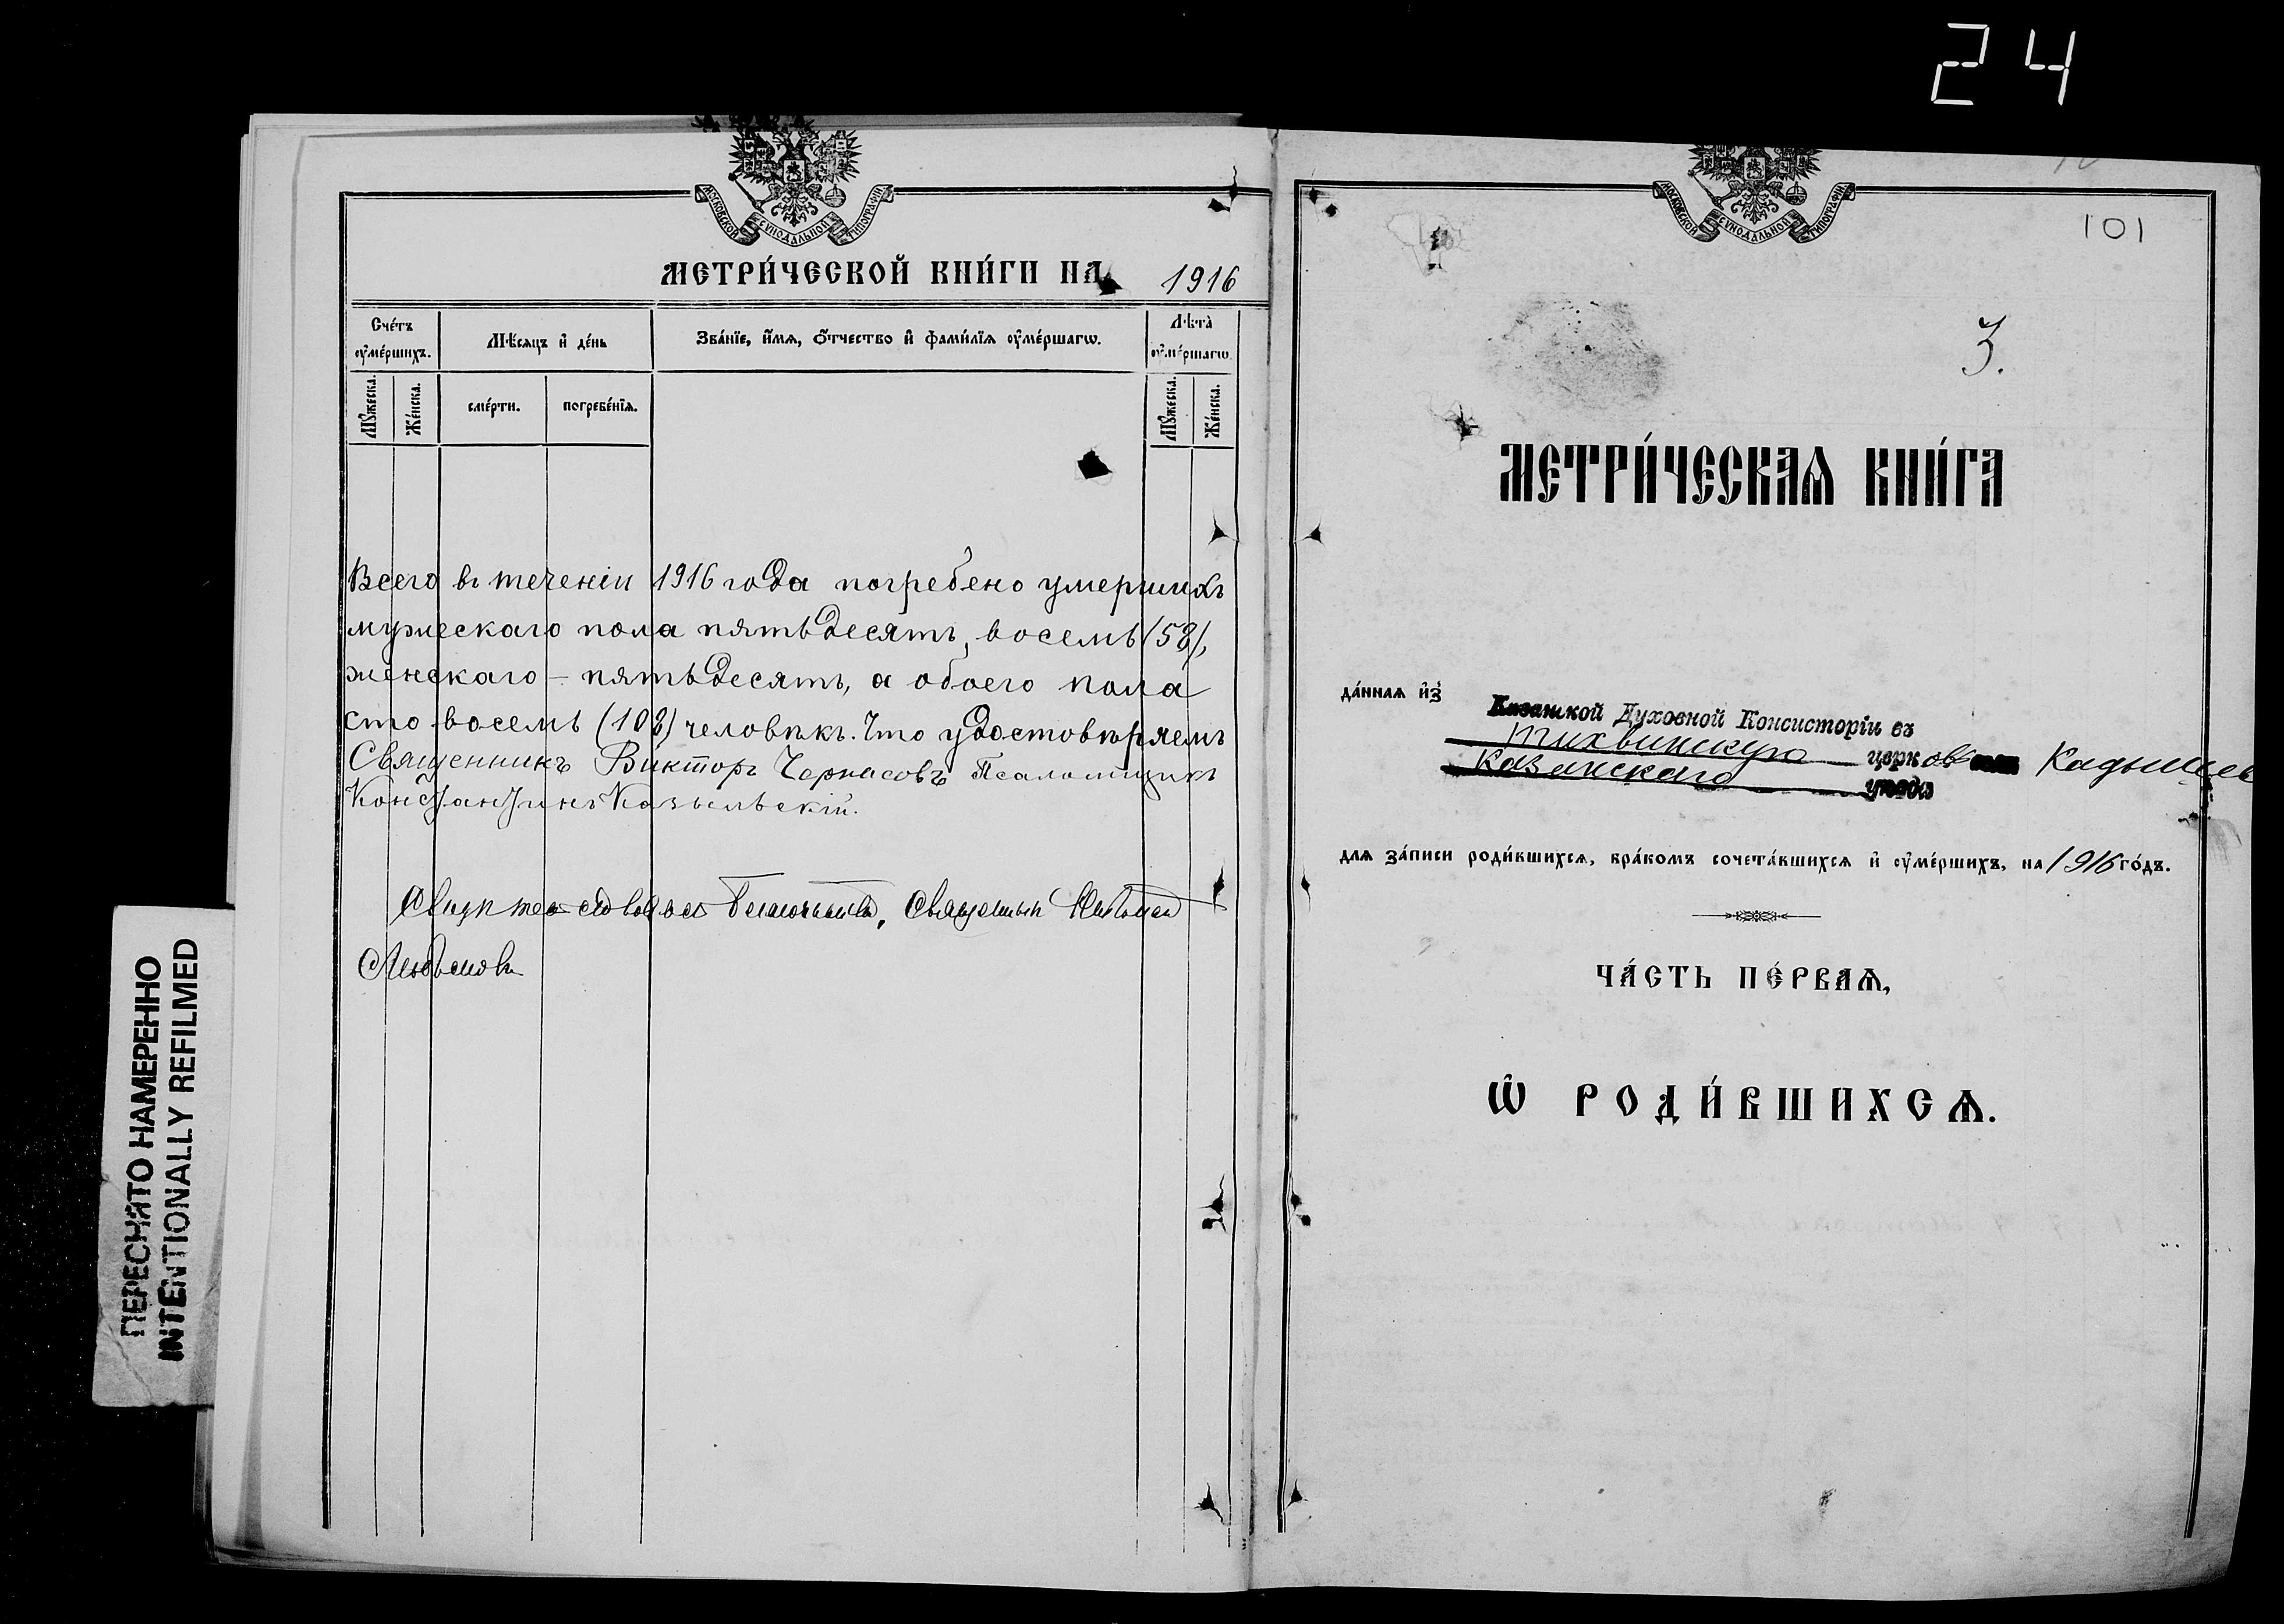 24
МОСКОВСКОЙ СѴНОДАЛЬНОЙ ТИПОГРАФІИ
МЕТРИ́ЧЕСКОЙ КНИ́ГИ НА 1916
Счéтъ ᲂумéршихъ.
Мѣ́сяцъ и҆ дéнь
Звáнїе, и҆́мѧ, ѻ҆́тчество и҆ фамѝлїѧ ᲂу҆мéршагѡ.
Лѣ́та ᲂу҆мéршагѡ
Мꙋ́жеска.
Жéнска.
смéрти.
погребéнїѧ.
Мꙋ́жеска.
Жéнска.
Всего въ теченіи 1916 года погребено умершихъ
мужескаго пола пятьдесятъ восемь (58),
женскаго – пятьдесятъ, а обоего пола
сто восемь (108) человѣкъ. Что удостовѣряемъ
Священникъ Викторъ Черкасовъ Псаломщикъ
Константинъ
Священникъ
ПЕРЕСНЯТО НАМЕРЕННО
INTENTIONALLY REFILMED
МОСКОВСКОЙ СѴНОДАЛЬНОЙ ТИПОГРАФІИ
101
3.
МЕТРИ́ЧЕСКАѦ КНИ́ГА
дáннаѧ и҆з̾
Казанской Духовной Консисторіи въ
Тихвинскую церковь Кадышев
Казанскаго уѣзда
для зáписи роди́вшихсѧ, брáкомъ сочетáвшихсѧ и҆ ᲂу҆мéршихъ, на 1916 гóдъ.
ЧÁСТЬ ПÉРВАѦ,
Ѽ РОДИ́ВШИХСѦ.